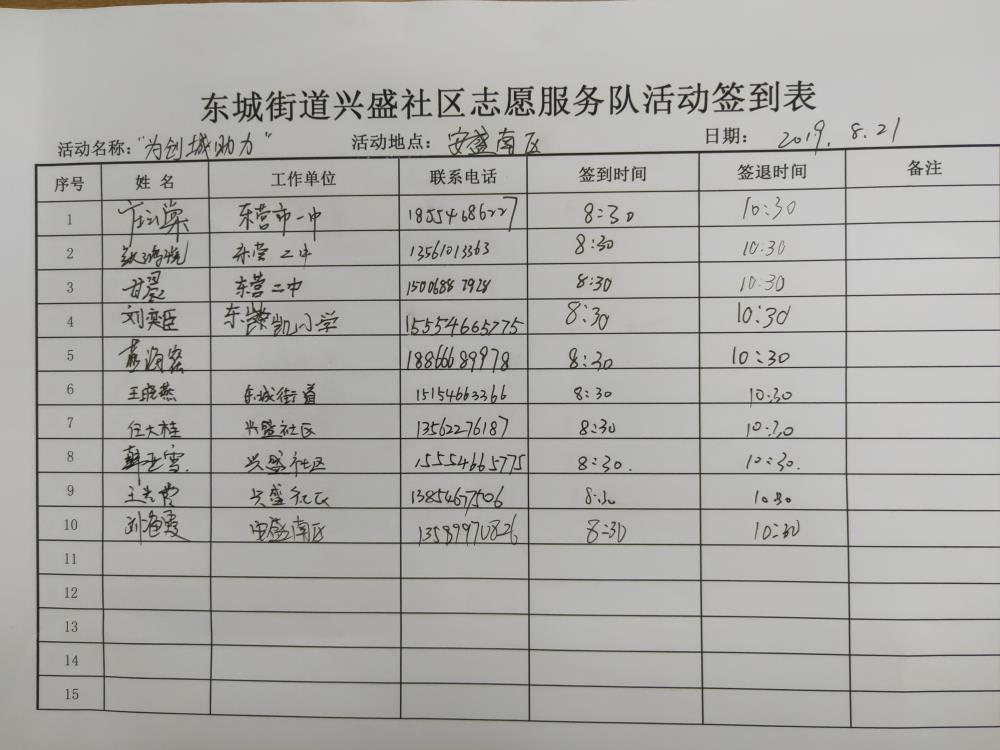 东城街道兴盛社区志愿服务队活动签到表
活动名称："为创城助力" 活动地点：安盛南区 日期：2019.8.21
序号 姓名 工作单位 联系电话 签到时间 签退时间 备注
1 东营市一中 18554686227 8:30 10:30
2 东营二中 13561013363 8:30 10:30
3 甘晨 东营二中 15006887928 8:30 10:30
4 刘奕臣 东凯小学 15554665775 8:30 10:30
5 18866689978 8:30 10:30
6 王晓燕 东城街道 15154663366 8:30 10:30
7 任大桂 兴盛社区 13562276187 8:30 10:30
8 韩亚雪 兴盛社区 15554665775 8:30. 10:30.
9 兴盛社区 13854677506 8:30 10:30
10 刘海霞 安盛南区 13589970826 8:30 10:30
11
12
13
14
15